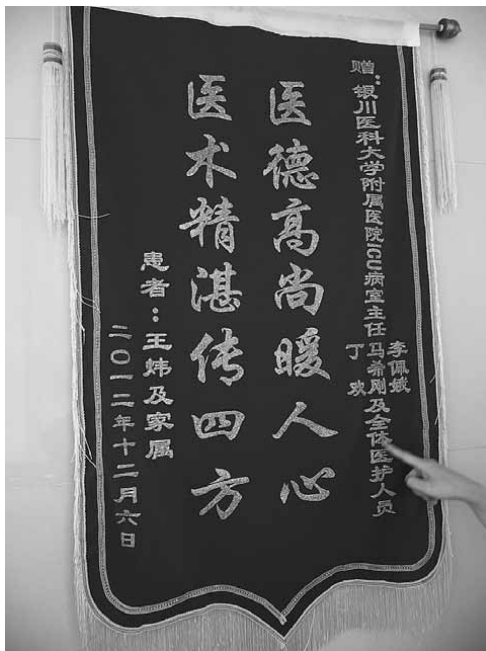 赠：银川医科大学附属医院ICU病室主任
李佩娥
马希刚及全体医护人员
丁欢
医德高尚暖人心
医术精湛传四方
患者：王炜及家属
二〇一二年十二月六日